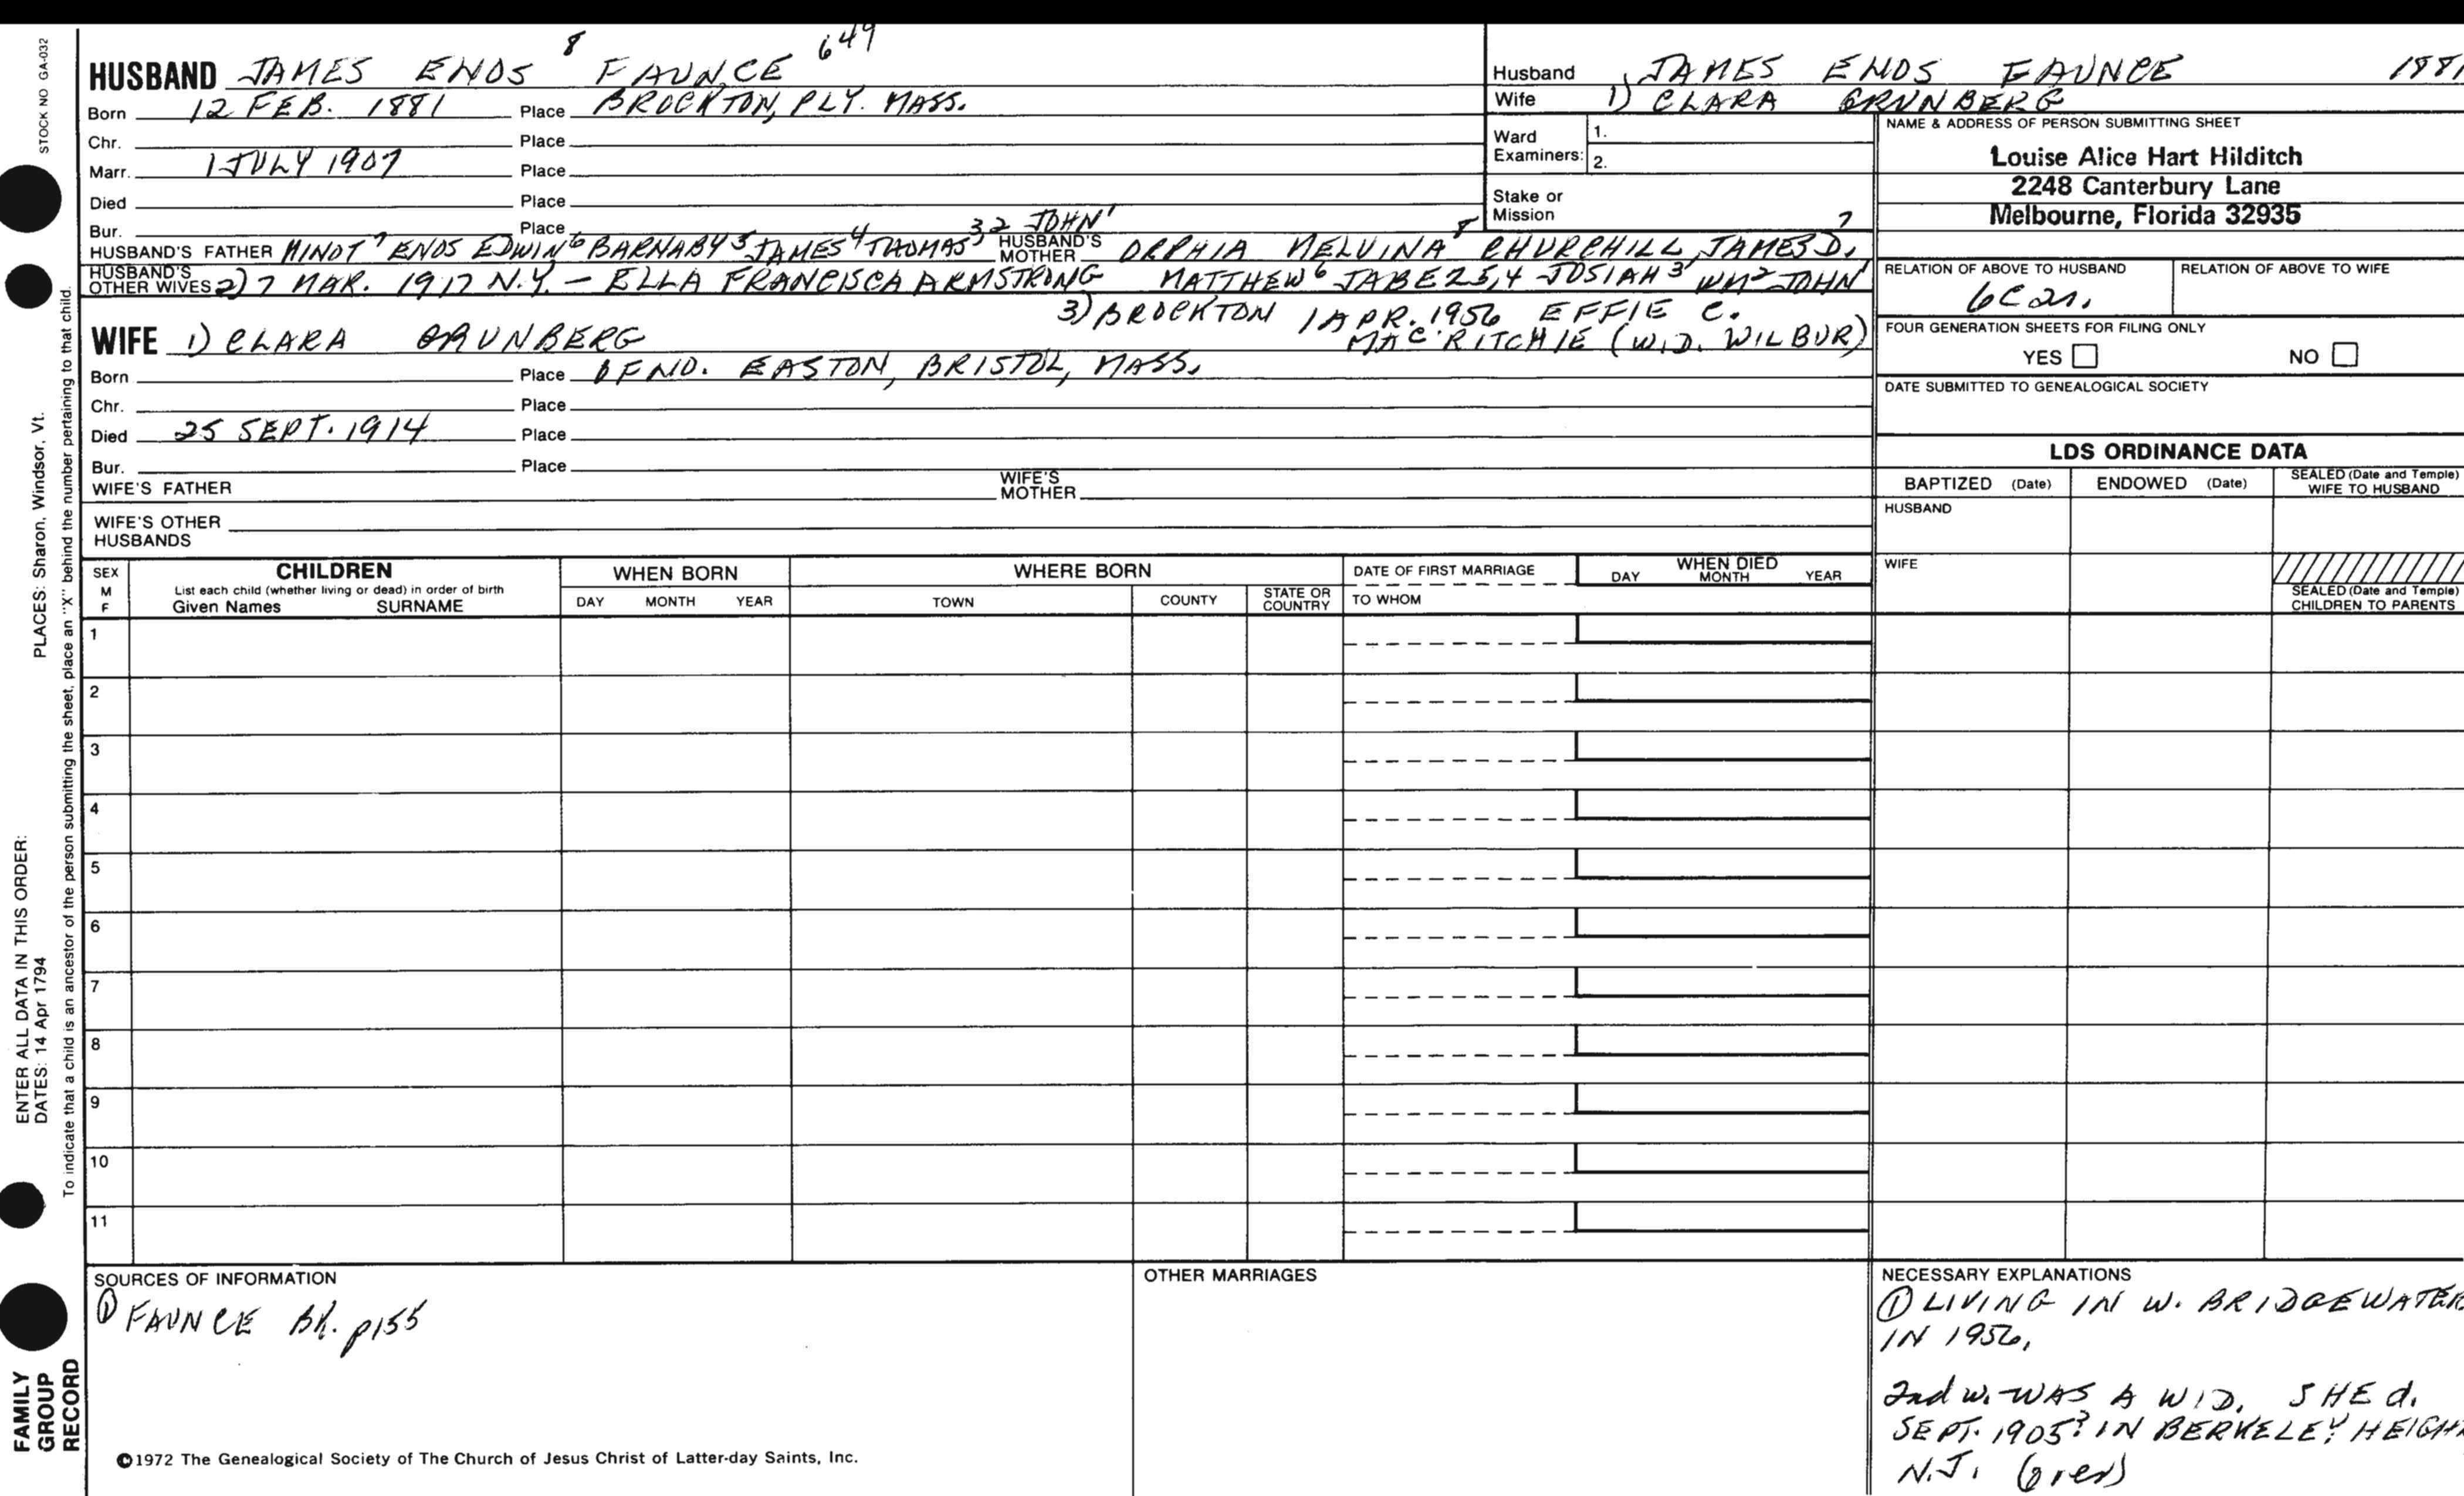 STOCK NO GA-032
HUSBAND JAMES ENOS 8 FAUNCE 649
Born 12 FEB. 1881 Place BROCKTON, PLY. MASS.
Chr. Place
Marr. 1 JULY 1907 Place
Died Place
Bur. Place
HUSBAND'S FATHER MINOT 7 ENOS EDWIN 6 BARNABY 5 JAMES 4 THOMAS 3,2 JOHN 1 HUSBAND'S MOTHER ORPHIA MELVINA 8 CHURCHILL, JAMES D. 7
HUSBAND'S OTHER WIVES 2) 7 MAR. 1917 N.Y. - ELLA FRANCISCA ARMSTRONG MATTHEW 6 JABEZ 5,4 JOSIAH 3 WM 2 JOHN 1
3) BROCKTON 1 APR. 1956 EFFIE C.
MAC RITCHIE (WID. WILBUR)
WIFE 1) CLARA GRUNBERG
Born Place OF NO. EASTON, BRISTOL, MASS.
Chr. Place
Died 25 SEPT. 1914 Place
Bur. Place
WIFE'S FATHER WIFE'S MOTHER
WIFE'S OTHER HUSBANDS
Husband JAMES ENOS FAUNCE 1881
Wife 1) CLARA GRUNBERG
Ward Examiners: 1.
2.
Stake or Mission
NAME & ADDRESS OF PERSON SUBMITTING SHEET
Louise Alice Hart Hilditch
2248 Canterbury Lane
Melbourne, Florida 32935
RELATION OF ABOVE TO HUSBAND RELATION OF ABOVE TO WIFE
FOUR GENERATION SHEETS FOR FILING ONLY
YES NO
DATE SUBMITTED TO GENEALOGICAL SOCIETY
LDS ORDINANCE DATA
BAPTIZED (Date) ENDOWED (Date) SEALED (Date and Temple) WIFE TO HUSBAND
HUSBAND
WIFE
SEALED (Date and Temple) CHILDREN TO PARENTS
SEX M F
CHILDREN
List each child (whether living or dead) in order of birth
Given Names SURNAME
WHEN BORN
DAY MONTH YEAR
WHERE BORN
TOWN COUNTY STATE OR COUNTRY
DATE OF FIRST MARRIAGE
TO WHOM
WHEN DIED
DAY MONTH YEAR
1
2
3
4
5
6
7
8
9
10
11
SOURCES OF INFORMATION
① FAUNCE BK. p155
OTHER MARRIAGES
NECESSARY EXPLANATIONS
① LIVING IN W. BRIDGEWATER
IN 1956.
2nd w. WAS A WID. SHE d.
SEPT. 1905? IN BERKELEY HEIGHTS
N.J. (over)
©1972 The Genealogical Society of The Church of Jesus Christ of Latter-day Saints, Inc.
PLACES: Sharon, Windsor, Vt.
ENTER ALL DATA IN THIS ORDER:
DATES: 14 Apr 1794
To indicate that a child is an ancestor of the person submitting the sheet, place an "X" behind the number pertaining to that child.
FAMILY
GROUP
RECORD